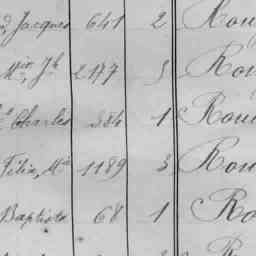 Jacques 641 2 Rou
Mie, Jh 2177 3 Rou
Charles 384 1 Rou
Félix, Mie 1189 3 Rou
Baptiste 68 1 Ro